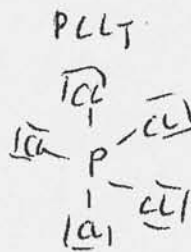 PCl5
Cl
Cl P Cl
Cl Cl